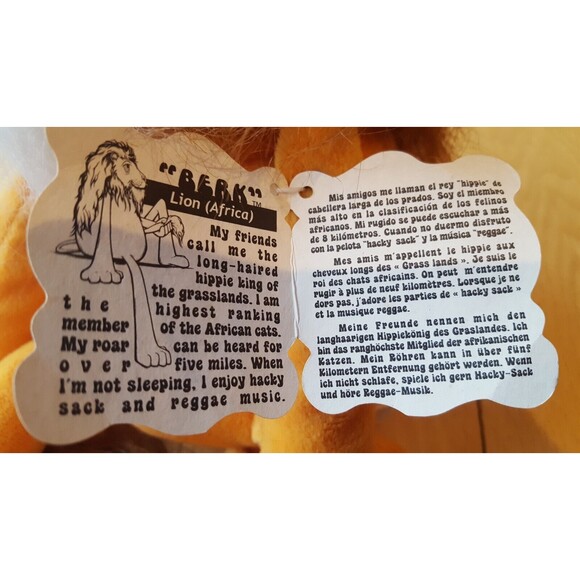 "BERK"™
Lion (Africa)
My friends
call me the
long-haired
hippie king of
the grasslands. I am
the highest ranking
member of the African cats.
My roar can be heard for
over five miles. When
I'm not sleeping, I enjoy hacky
sack and reggae music.
Mis amigos me llaman el rey "hippie" de
cabellera larga de los prados. Soy el miembro
más alto en la clasificación de los felinos
africanos. Mi rugido se puede escuchar a más
de 8 kilómetros. Cuando no duermo disfruto
con la pelota "hacky sack" y la música "reggae".
Mes amis m'appellent le hippie aux
cheveux longs des « Grass lands ». Je suis le
roi des chats africains. On peut m'entendre
rugir à plus de neuf kilomètres. Lorsque je ne
dors pas, j'adore les parties de « hacky sack »
et la musique reggae.
Meine Freunde nennen mich den
langhaarigen Hippiekönig des Graslandes. Ich
bin das ranghöchste Mitglied der afrikanischen
Katzen. Mein Röhren kann in über fünf
Kilometern Entfernung gehört werden. Wenn
ich nicht schlafe, spiele ich gern Hacky-Sack
und höre Reggae-Musik.